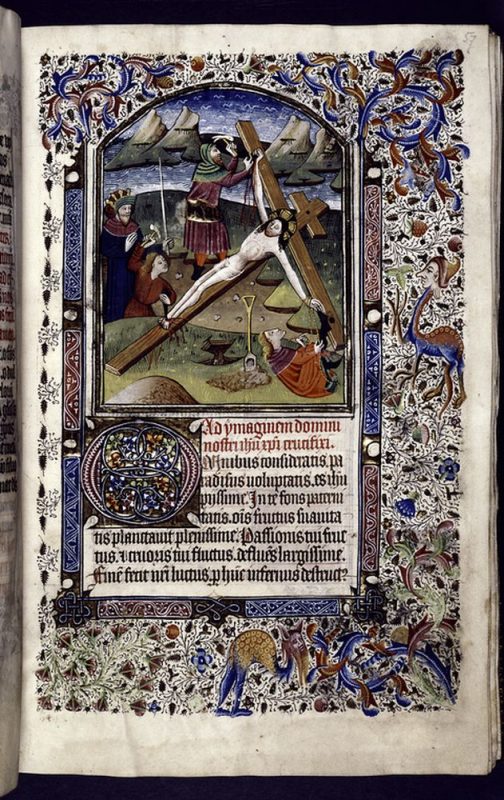 57
Ad ymaginem domini
nostri ihu xpi crucifixi.
Omnibus consideratis. pa
radisus uoluptatis. es ihu
pyssime. In te fons patem
ueritatis. ois fructus suauita
tis plantauit plenissime. Passionis tui fruc
tus. & cruoris tui fluctus. defluens largissime.
fructus p huc infernus destruct9